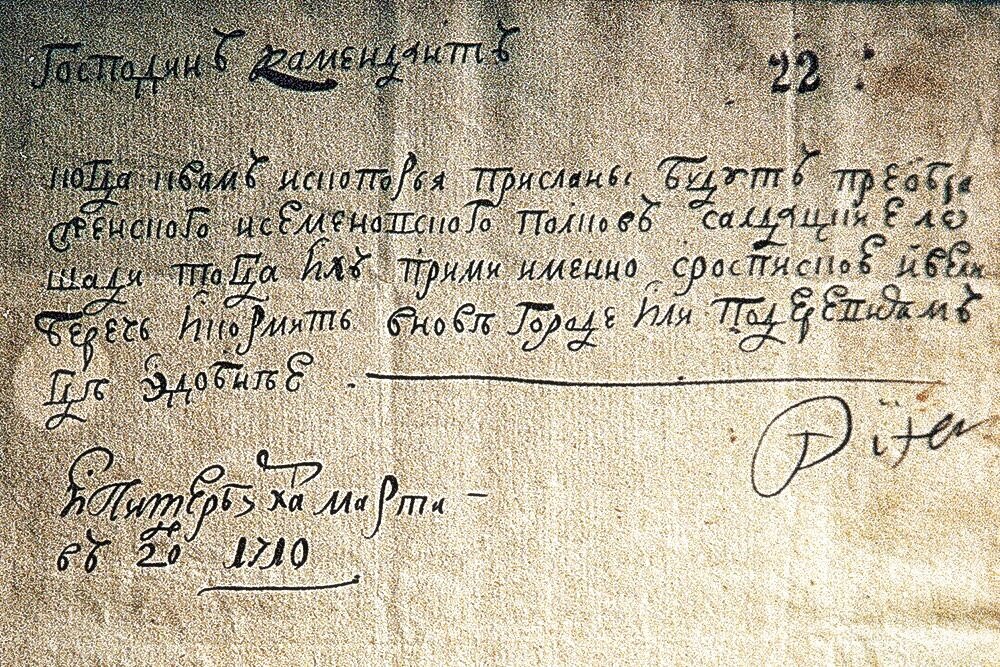 Господинъ Камендантъ
22
когда квамъ ископорья присланы будутъ преобра
женского исеменовского полковъ салдацкие ло
шади тогда ихъ прими именно сросписков ивели
беречь икормить вновъ городе или подеревнамъ
гдѣ удобнѣе
Piter
Питербурха марта
въ 20 1710